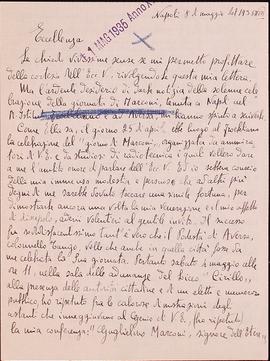 Napoli 8 di maggio del 1935 XIII
11 MAG 1935 Anno X
Eccellenza
Le chiedo vivissime scuse se mi permetto profittare
della cortesia dell'Ecc. V. rivolgendole questa mia lettera.
Ma l'ardente desiderio di darle notizia della solenne cele
brazione della giornata di Marconi, tenuta a Napoli nel
ed ad Aversa, mi hanno spinto a scriverle.
Come Ella sa, il giorno 25 di aprile ebbe luogo al
la celebrazione del "giorno di Marconi, organizzata da ammira
tori di V.E. e da studiosi di radiotecnica i quali vollero dare
a me l'ambito onore di parlare dell'Ecc. V. Ed io sebbene conscio
della mia immensa modestia e persuaso che ad altri più
degni di me sarebbe dovuto toccare una simile fortuna, per
dimostrarle ancora una volta la mia venerazione e il mio affetto
di discepolo, aderii volentieri al gentile invito. Il successo
fu soddisfacentissimo tant'è vero che il Podestà di Aversa,
colonnello Tango, volle che anche in quella città fosse da
me celebrata la Sua giornata. Pertanto sabato 4 maggio alle
ore 11, nella sala delle adunanze del Liceo "Cirillo",
alla presenza delle autorità cittadine e di un eletto e numeroso
pubblico, ho ripetuto fra le calorose dimostrazioni degli
astanti che inneggiavano al Genio di V.E. (ho ripetuto)
la mia conferenza: "Guglielmo Marconi, signore dell'Etere",